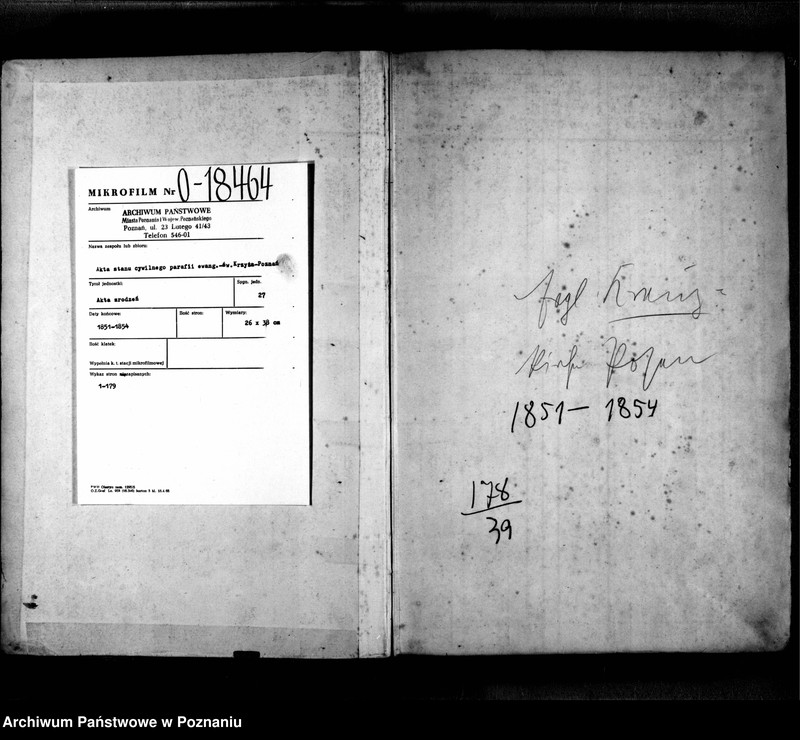 MIKROFILM Nr O-18464
Archiwum
ARCHIWUM PAŃSTWOWE
Miasta Poznania i Wojew. Poznańskiego
Poznań, ul. 23 Lutego 41/43
Telefon 546-01
Nazwa zespołu lub zbioru:
Akta stanu cywilnego parafii ewang.-św.Krzyża-Poznań
Tytuł jednostki:
Sygn. jedn.
Akta urodzeń
27
Daty końcowe:
Ilość stron:
Wymiary:
1851-1854
26 x 38 cm
Ilość klatek:
Wypełnia k. t. stacji mikrofilmowej
Wykaz stron niezapisanych:
1-179
Kreuz-
Posen
1851 - 1854
178
39
Archiwum Państwowe w Poznaniu